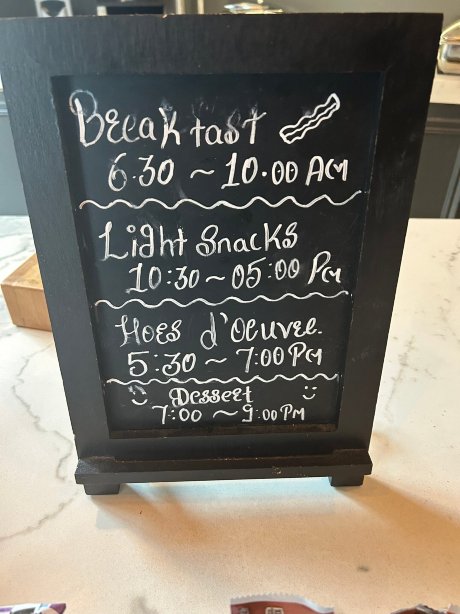 Breakfast
6.30 ~ 10.00 AM
Light Snacks
10:30 ~ 05:00 PM
Hoes d'oeuvre.
5:30 ~ 7:00 PM
Dessert
7:00 ~ 9:00 PM